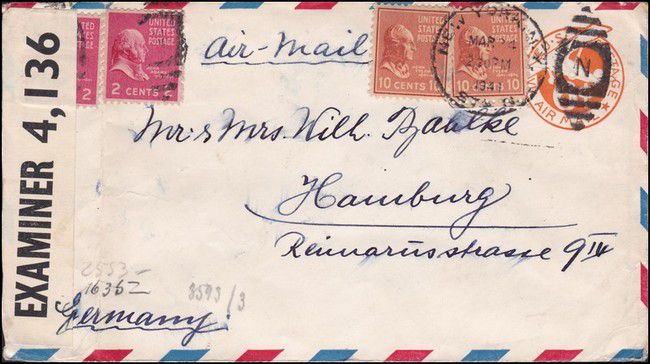 EXAMINER 4,136
2
UNITED STATES POSTAGE
2 CENTS 2
UNITED STATES POSTAGE
10 CENTS 10
UNITED STATES POSTAGE
10
NEW YORK, N.Y.
MAR
2 30 PM
N
AIR
Air-Mail
Mr. & Mrs. Wilh. Baulke
Hamburg
Reimarusstrasse 9 IV
2553-
1635-
3593/3
Germany